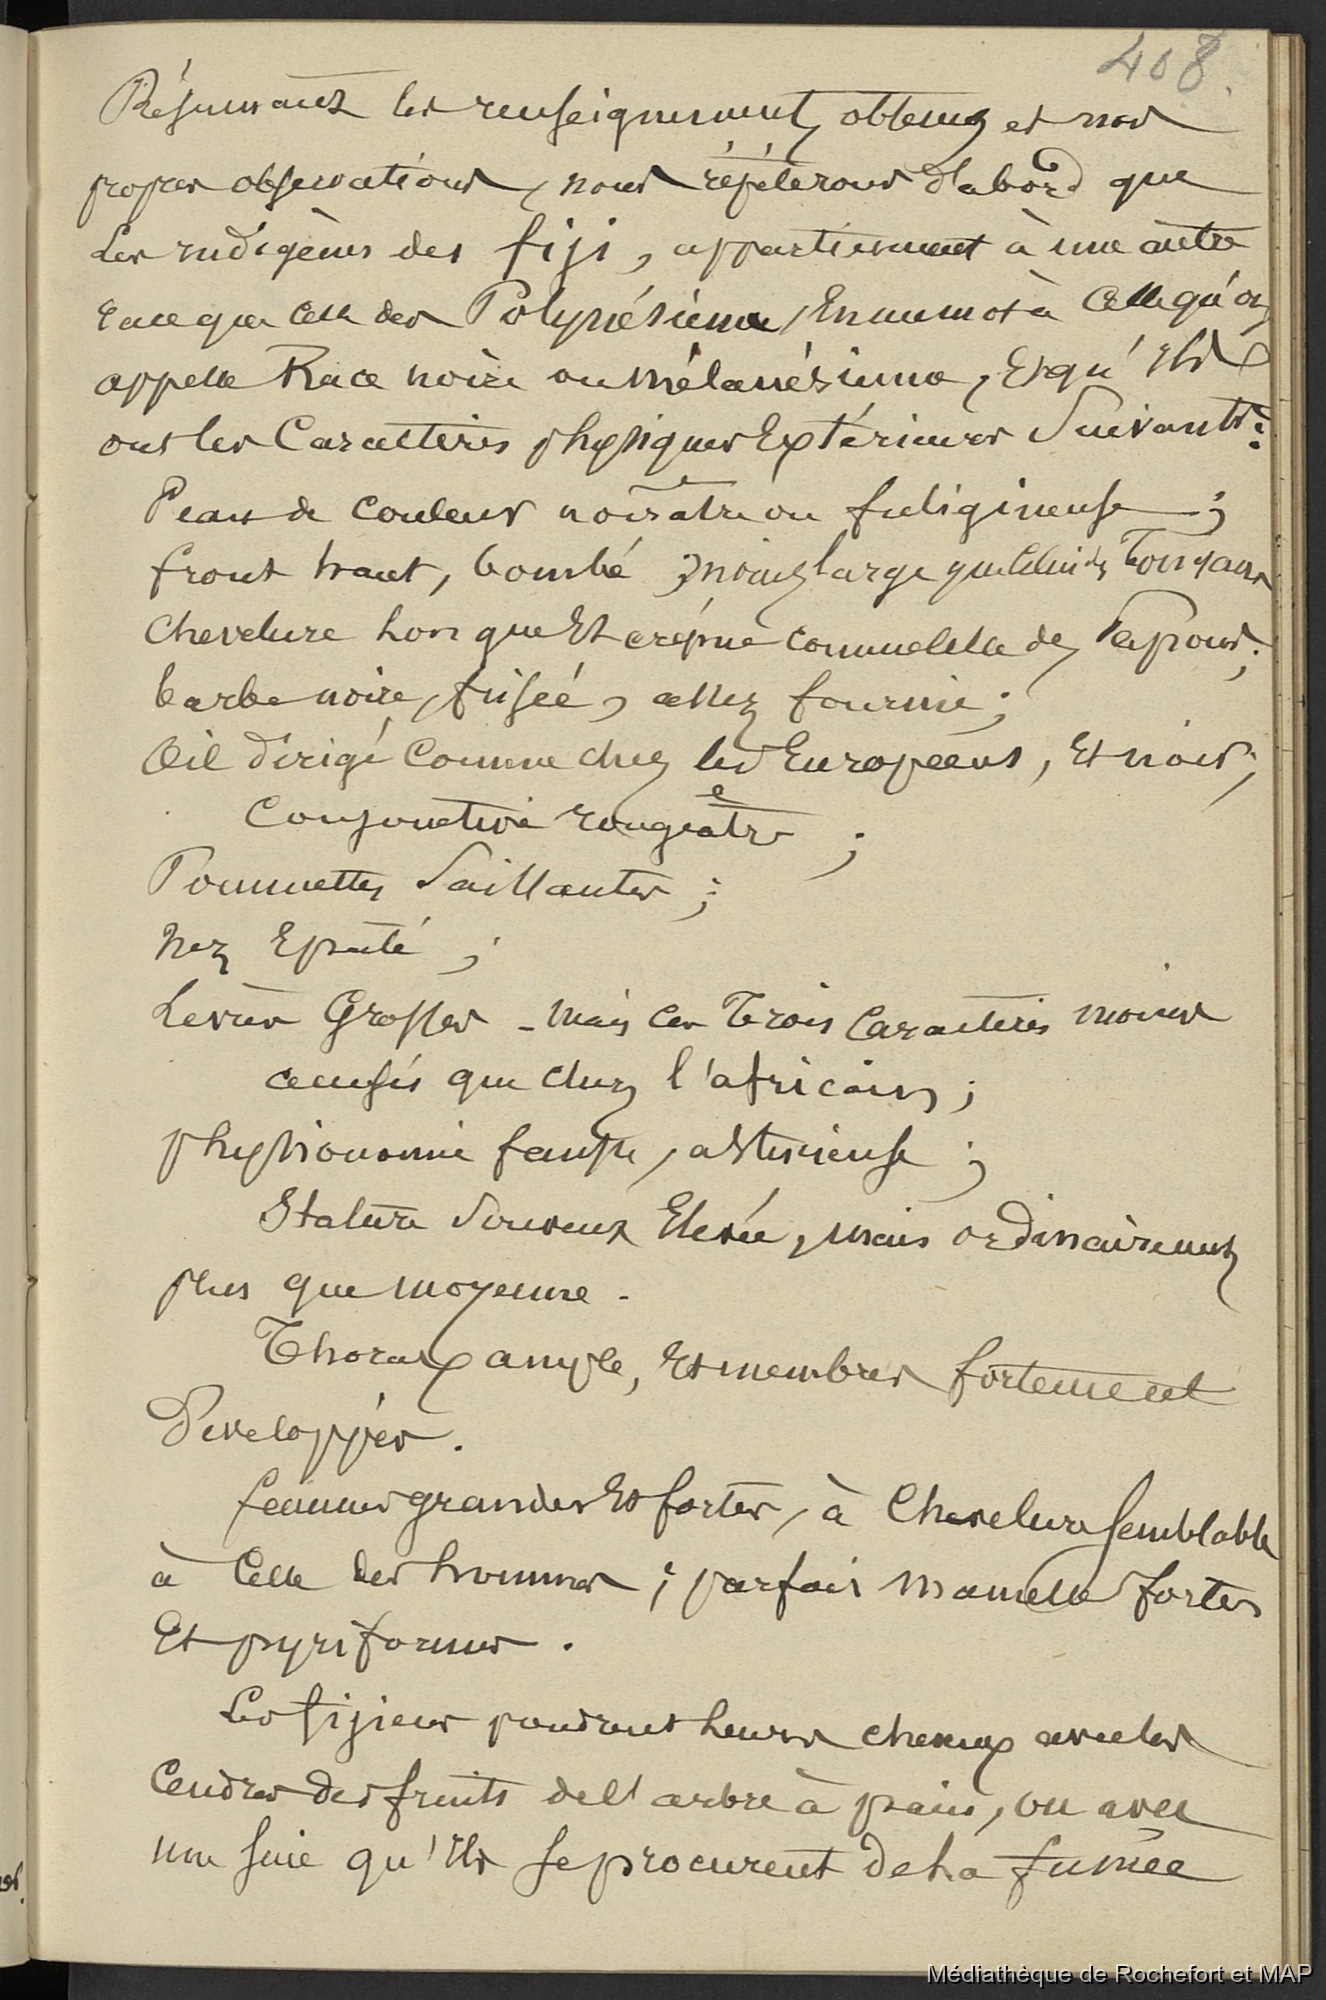 408.
Résumant les renseignements obtenus et nos
propres observations, nous répéterons d'abord que
Les indigènes des fiji, appartiennent à une autre
race que celle des Polynésiens, En un mot à Celle qu'on
appelle Race noire ou Mélanésienne, Et qu'Ils
ont les Caractères physiques Extérieurs Suivants :
Peau de couleur noirâtre ou fuligineuse ;
front haut, bombé, moins large que celui des Tongans
Chevelure longue Et crépue comme celle des Papous ;
barbe noire, frisée, assez fournie ;
Œil dirigé Comme chez les Européens, Et noir ;
Conjonctive rougeatre ;
Pommettes Saillantes ;
Nez Epaté ;
Levres Grosses - Mais ces Trois Caractères moins
accusés que chez l'africain ;
physionomie fausse, astucieuse ;
Stature Souvent Elevée, mais ordinairement
plus que moyenne.
Thorax ample, Et membres fortement
Developpés.
femmes grandes Et fortes, à Chevelure Semblable
à Celle des hommes ; parfois Mamelles fortes
Et pyriformes.
Les fijiens poudrent leurs cheveux avec les
Cendres des fruits de l'arbre à pain, ou avec
une suie qu'Ils se procurent de la fumée
Médiathèque de Rochefort et MAP